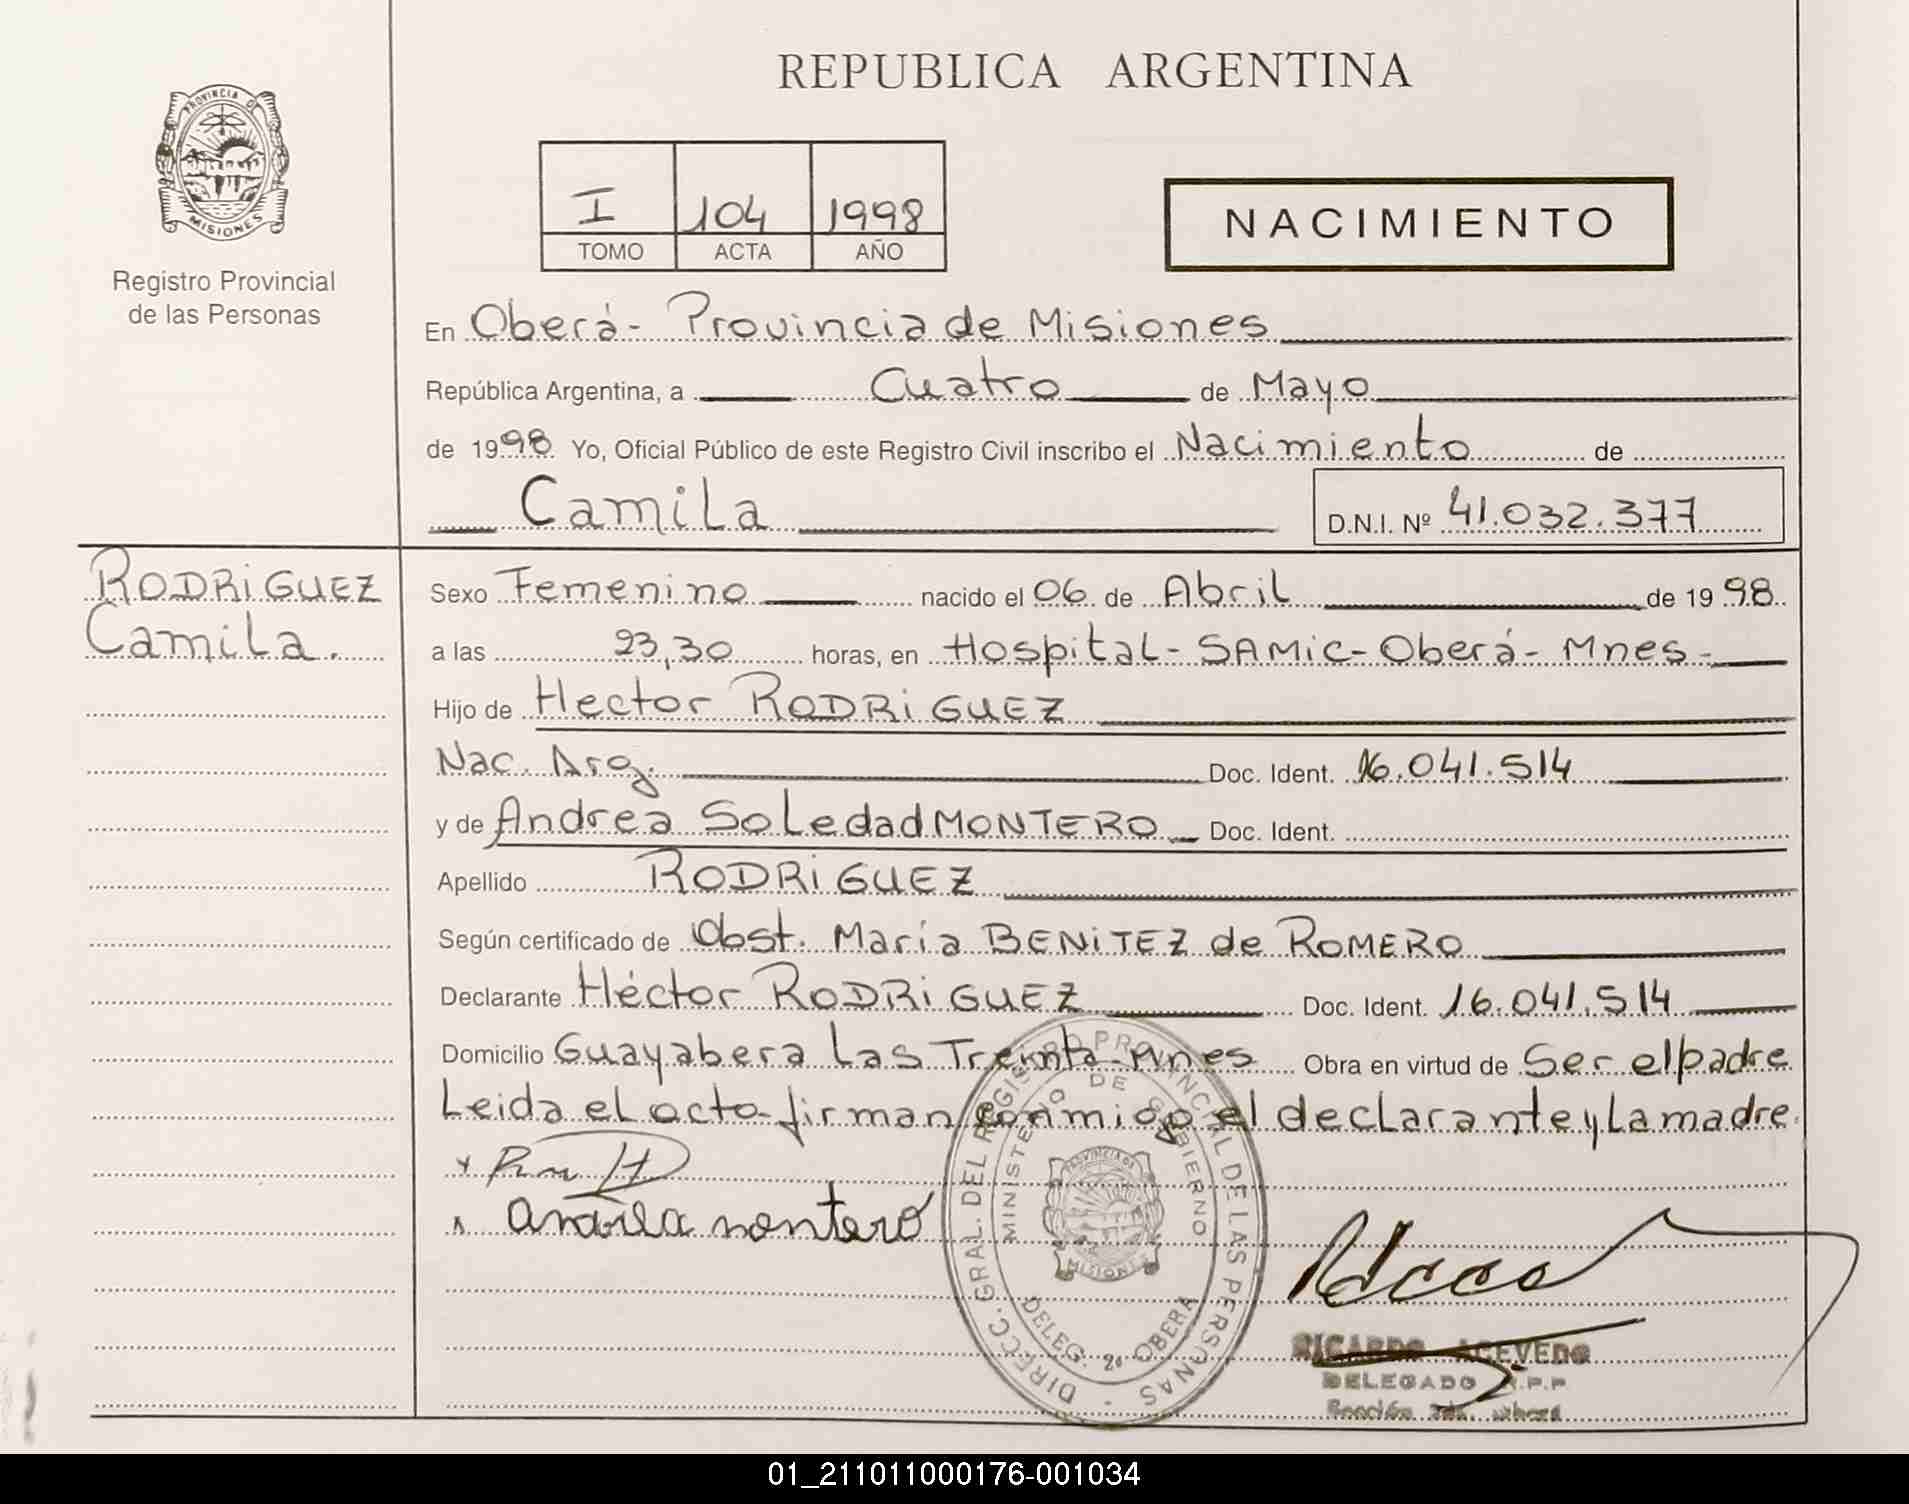 REPUBLICA ARGENTINA
PROVINCIA DE
MISIONES
Registro Provincial
de las Personas
I 104 1998
TOMO ACTA AÑO
NACIMIENTO
En Oberá- Provincia de Misiones
República Argentina, a Cuatro de Mayo
de 1998 Yo, Oficial Público de este Registro Civil inscribo el Nacimiento de
Camila D.N.I. Nº 41.032.377
RODRiGUEZ
Camila.
Sexo Femenino nacido el 06 de Abril de 1998
a las 23,30 horas, en Hospital- SAMiC- Oberá- Mnes-
Hijo de Hector RODRiGUEZ
Nac. Arg. Doc. Ident. 16.041.514
y de Andrea Soledad MONTERO Doc. Ident.
Apellido RODRiGUEZ
Según certificado de Obst. María BENiTEZ de ROMERO
Declarante Héctor RODRiGUEZ Doc. Ident. 16.041.514
Domicilio Guayabera Las Treinta-Mnes Obra en virtud de Ser el padre
Leida el acta firman conmigo el declarante y la madre.
Andrea montero
DIRECC. GRAL. DEL REGISTRO PROVINCIAL DE LAS PERSONAS
MINISTERIO DE GOBIERNO
PROVINCIA DE
MISIONES
DELEG. 2ª OBERA
RICARDO ACEVEDO
DELEGADO R.P.P
Sección 2da. Oberá
01_211011000176-001034